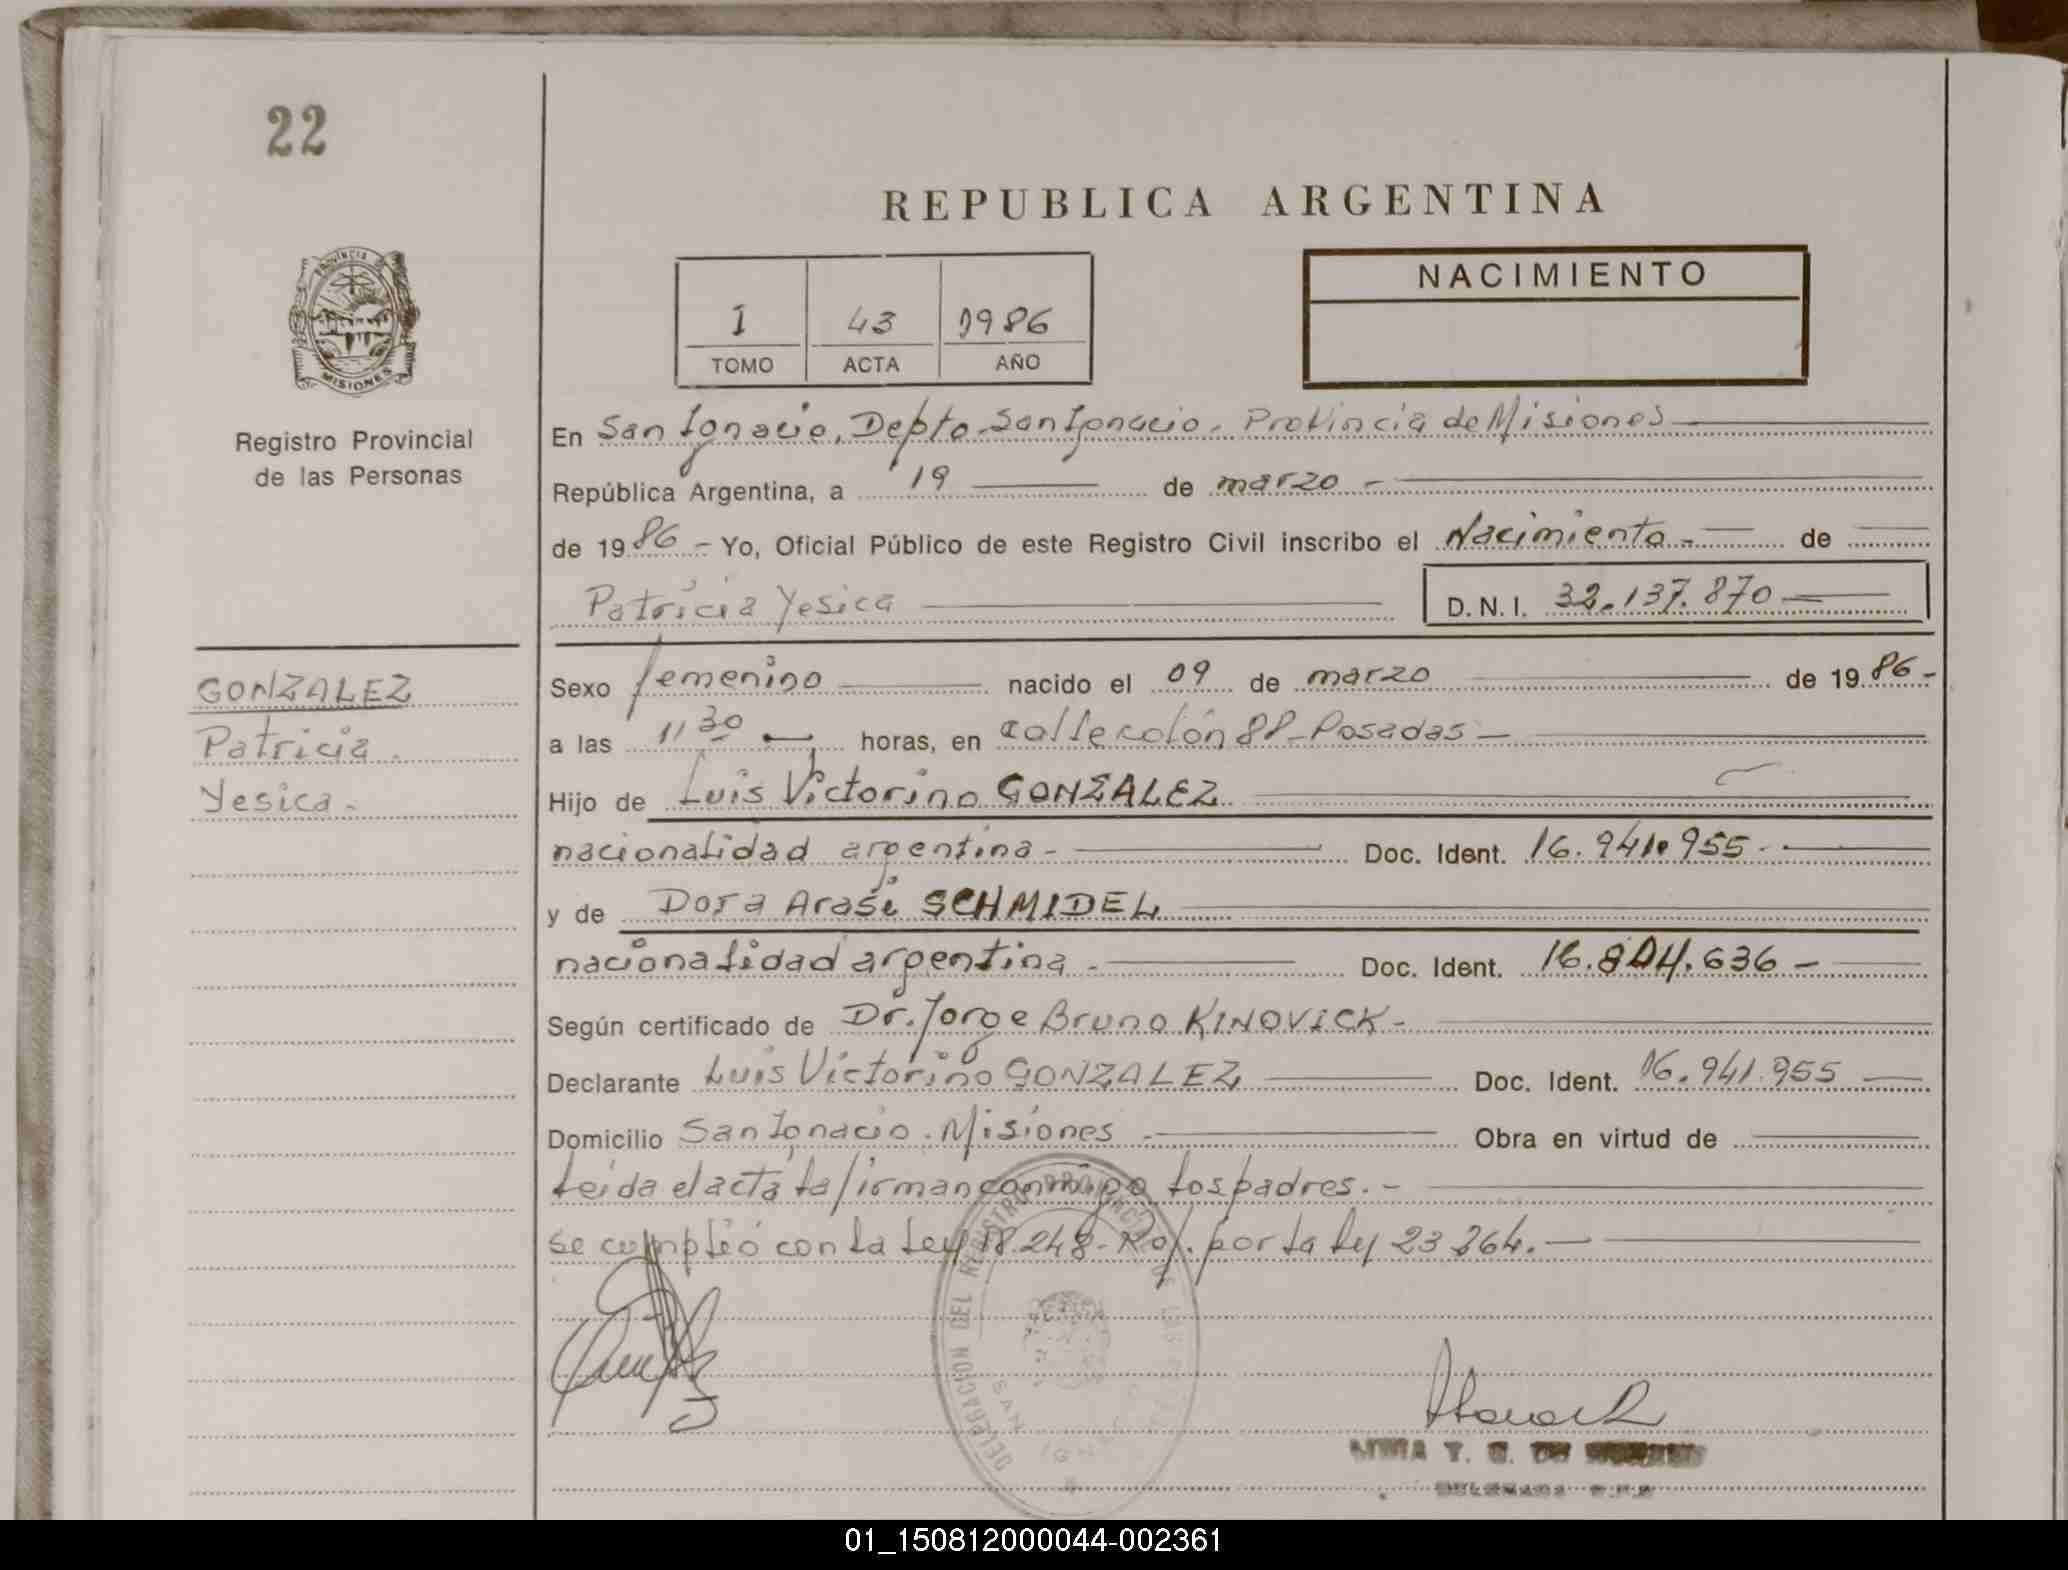 22
REPUBLICA ARGENTINA
PROVINCIA DE
MISIONES
Registro Provincial
de las Personas
I 43 1986
TOMO ACTA AÑO
NACIMIENTO
En San Ignacio, Depto San Ignacio. Provincia de Misiones
República Argentina, a 19 de marzo -
de 1986 - Yo, Oficial Público de este Registro Civil inscribo el Nacimiento - de
Patricia Yesica D.N.I. 32.137.870
GONZALEZ
Patricia
Yesica -
Sexo femenino nacido el 09 de marzo de 1986 -
a las 11 30 horas, en calle colón 88 - Posadas -
Hijo de Luis Victorino GONZALEZ
nacionalidad argentina - Doc. Ident. 16.941.955 -
y de Dora Arasi SCHMIDEL
nacionalidad argentina - Doc. Ident. 16.804.636 -
Según certificado de Dr. Jorge Bruno KINOVICK -
Declarante Luis Victorino GONZALEZ Doc. Ident. 16.941.955
Domicilio San Ignacio. Misiones - Obra en virtud de
Leída el acta la firman conmigo los padres. -
se cumplió con la Ley 18.248 - Ref. por la ley 23.264. -
DELEGACION DEL REGISTRO PROVINCIAL DE LAS
SAN
T. G. DE
01_150812000044-002361